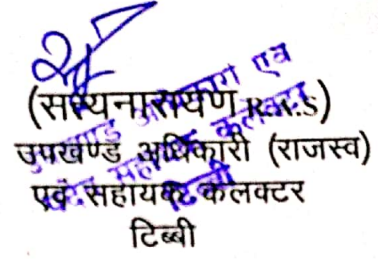 (सत्यनारायण R.K.S)
उपखण्ड अधिकारी (राजस्व)
एवं सहायक कलक्टर
टिब्बी